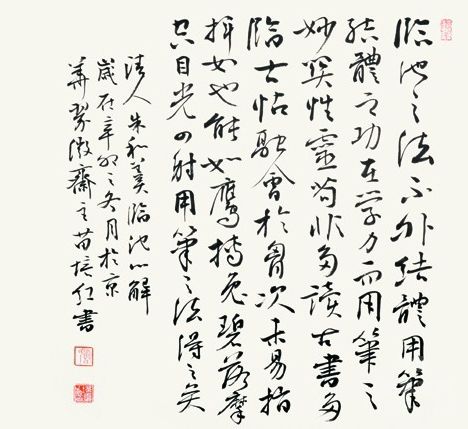 臨池之法不外结體用筆
结體之功在学力而用筆之
妙関性靈苟非多讀古書多
臨古帖融會於胸次未易指
揮如也能如鷹搏兔碧落摩
空目光四射用筆之法得之矣
清人朱和羹臨池心解
歲在辛卯之冬月於京
華翠微齋之苗培红書